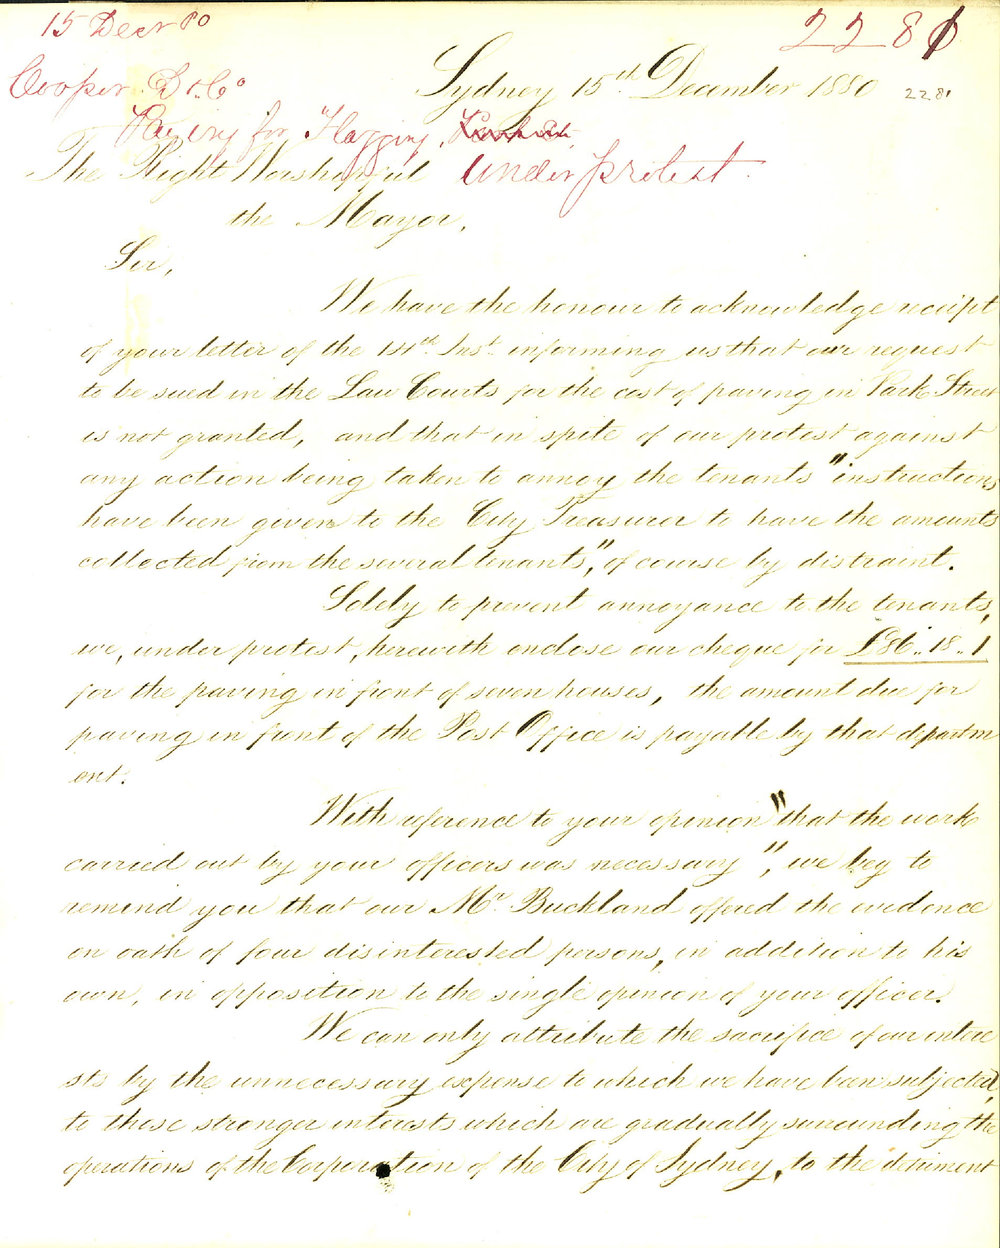 15 Decr 80
2281
Cooper D & Co
Sydney 15th December 1880
2281
Paving for Flagging,
under protest.
The Right Worshipful
the Mayor,
Sir,
We have the honour to acknowledge receipt
of your letter of the Inst. informing us that our request
to be sued in the Law Courts for the cost of paving in Park Street
is not granted, and that in spite of our protest against
any action being taken to annoy the tenants "instructions
have been given to the City Treasurer to have the amounts
collected from the several tenants", of course by distraint.
Solely to prevent annoyance to the tenants,
we, under protest, herewith enclose our cheque for £86..18..1
for the paving in front of seven houses, the amount due for
paving in front of the Post Office is payable by that departm
ent.
With reference to your opinion "that the work
carried out by your officers was necessary", we beg to
remind you that our Mr. Buckland offered the evidence
on oath of four disinterested persons, in addition to his
own, in opposition to the single opinion of your officer.
We can only attribute the sacrifice of our intere
sts by the unnecessary expense to which we have been subjected,
to those stronger interests which are gradually surrounding the
operations of the Corporation of the City of Sydney, to the detriment